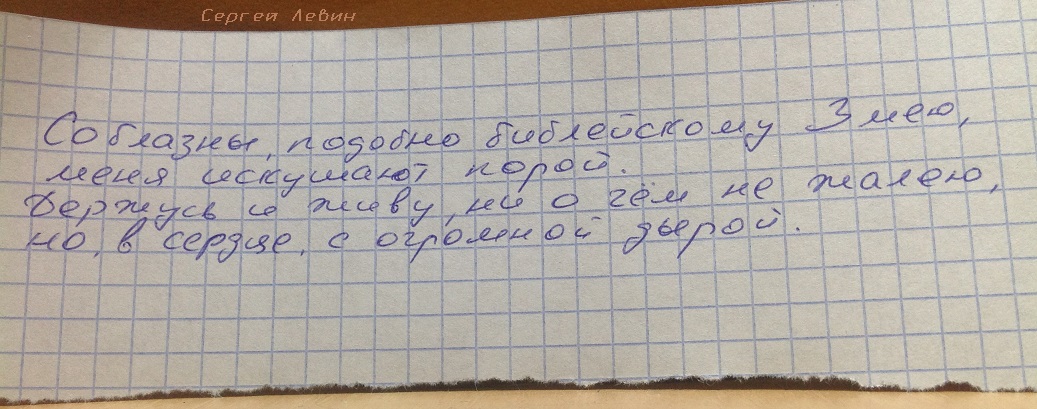 Сергей Левин
Соблазны, подобно библейскому Змею,
меня искушают порой.
Держусь и живу, ни о чём не жалею,
но, в сердце, с огромной дырой.